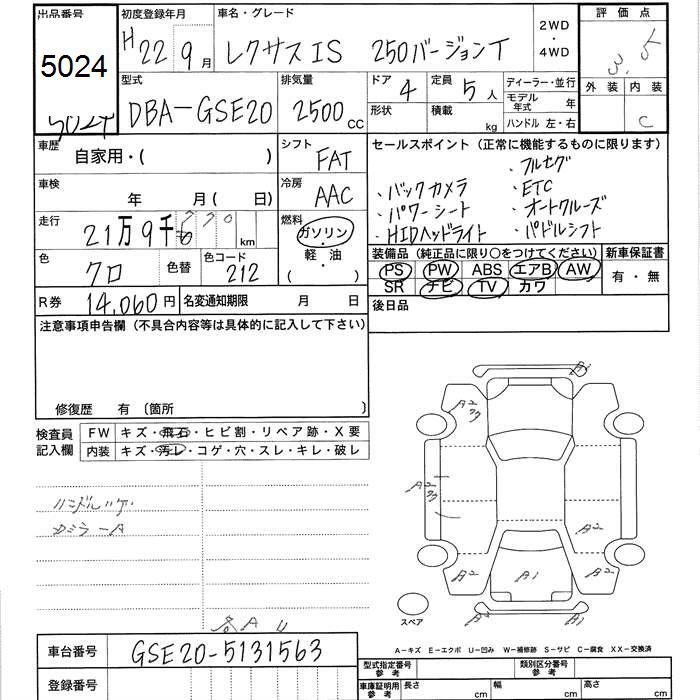 出品番号 初度登録年月 車名・グレード 2WD・4WD 評価点
5024 H22 9月 レクサスIS 250バージョンT 3.5
外装 内装
C
5024
型式 排気量 ドア 4 定員 5人 ディーラー・並行
DBA-GSE20 2500cc 形状 積載 kg モデル年式 年
ハンドル 左・右
車歴 自家用・( ) シフト FAT セールスポイント(正常に機能するものに限ります)
・フルセグ
車検 年 月( 日) 冷房 AAC ・バックカメラ ・ETC
・パワーシート ・オートクルーズ
走行 21万9千 770 km 燃料 ガソリン・軽油 ( ) ・HIDヘッドライト ・パドルシフト
色 クロ 色替 色コード 212
装備品(純正品に限り○をつけてください) 新車保証書
PS PW ABS エアB AW 有・無
SR ナビ TV カワ
R券 14,060円 名変通知期限 月 日
後日品
注意事項申告欄(不具合内容等は具体的に記入して下さい)
修復歴 有 (箇所 )
検査員記入欄 FW キズ・飛石・ヒビ割・リペア跡・X要
内装 キズ・汚レ・コゲ・穴・スレ・キレ・破レ
A1
A2
A2
A2
A2
A1
A2
A2
A1
スペア
A-キズ E-エクボ U-凹み W-補修跡 S-サビ C-腐食 XX-交換済
車台番号 GSE20-5131563
型式指定番号 参考 類別区分番号 参考
登録番号
車庫証明用 参考 長さ cm 幅 cm 高さ cm